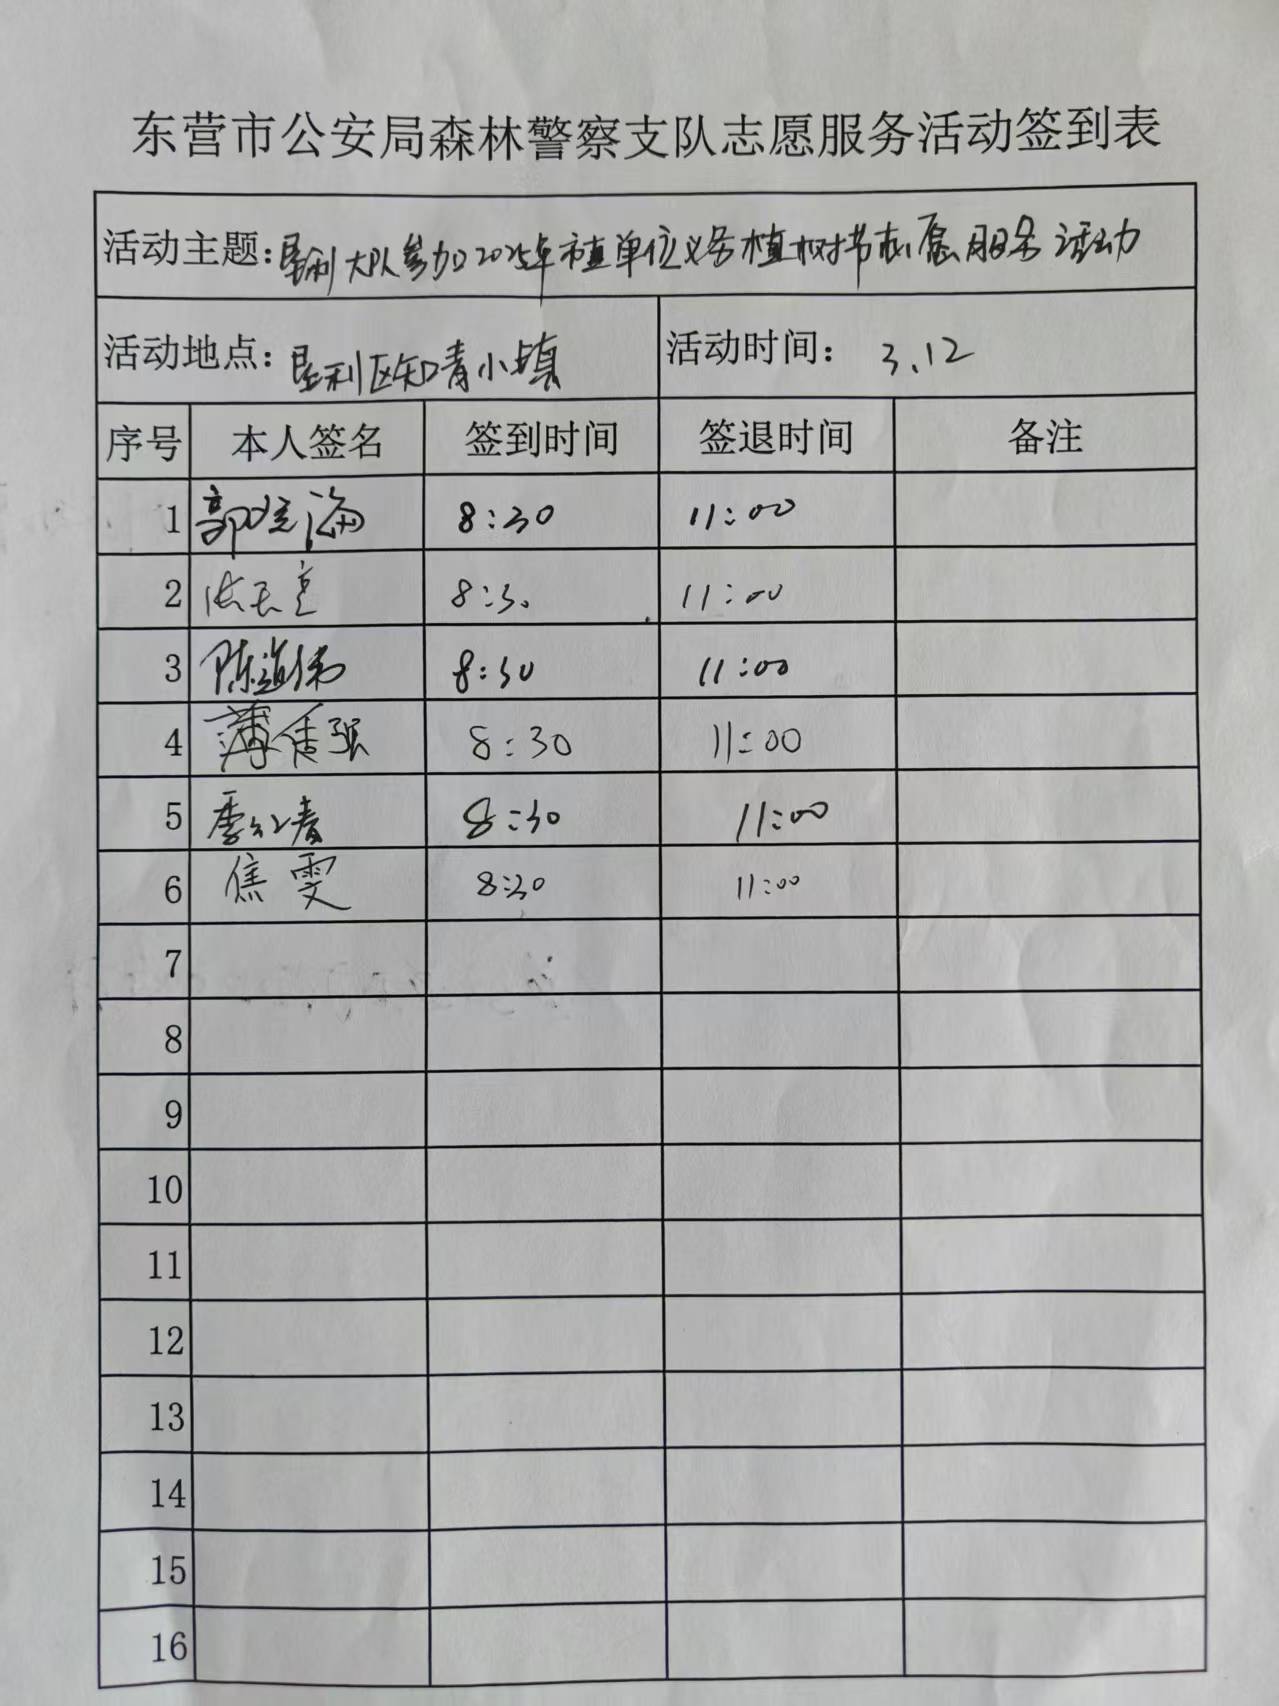 东营市公安局森林警察支队志愿服务活动签到表
活动主题：垦利大队参加2025年市直单位义务植树节志愿服务活动
活动地点：垦利区知青小镇 活动时间：3.12
序号 本人签名 签到时间 签退时间 备注
1 郭 海 8:30 11:00
2 8:30 11:00
3 陈道伟 8:30 11:00
4 薄 强 8:30 11:00
5 季红青 8:30 11:00
6 焦雯 8:30 11:00
7
8
9
10
11
12
13
14
15
16